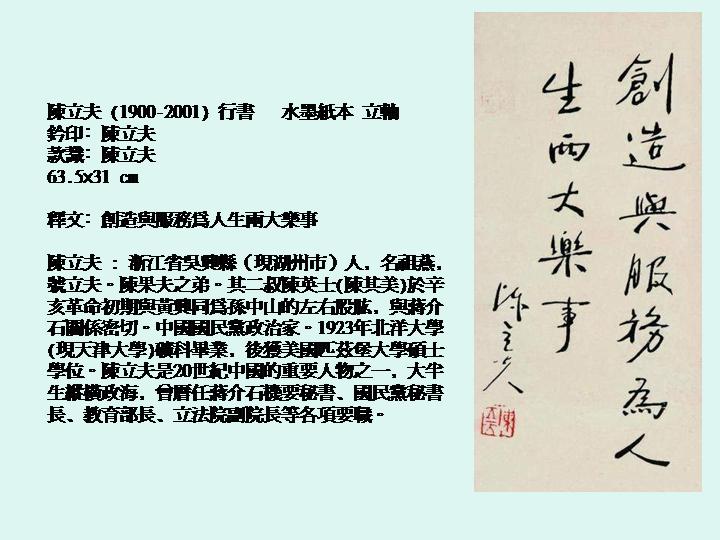 陳立夫 (1900-2001) 行書 水墨紙本 立軸
鈐印：陳立夫
款識：陳立夫
63.5x31 cm
釋文：創造與服務爲人生兩大樂事
陳立夫 : 浙江省吳興縣（現湖州市）人，名祖燕，
號立夫。陳果夫之弟。其二叔陳英士(陳其美)於辛
亥革命初期與黃興同爲孫中山的左右股肱，與蔣介
石關係密切。中國國民黨政治家。1923年北洋大學
(現天津大學)礦科畢業，後獲美國匹茲堡大學碩士
學位。陳立夫是20世紀中國的重要人物之一，大半
生縱橫政海，曾曆任蔣介石機要秘書、國民黨秘書
長、教育部長、立法院副院長等各項要職。
創造與服務為人
生兩大樂事
陳立夫